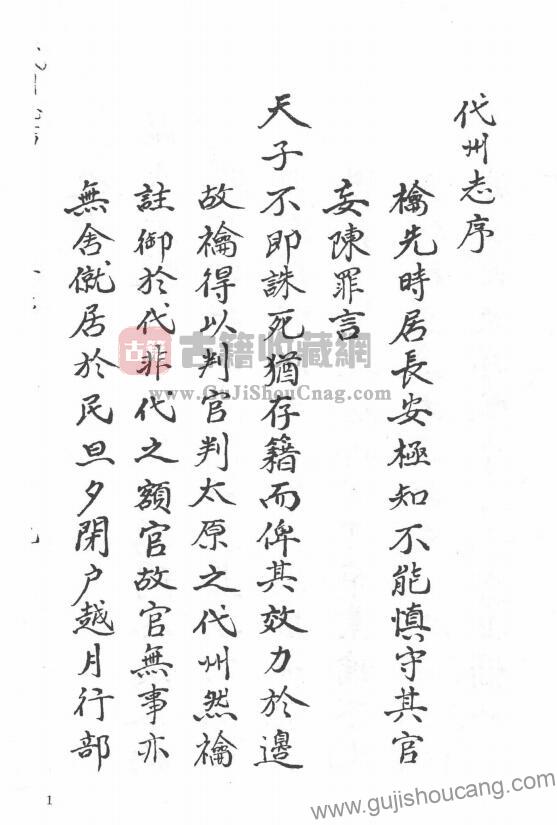 代州志序
檢先時居長安極知不能慎守其官
妄陳罪言
天子不即誅死猶存籍而俾其效力於邊
故襘得以判官判太原之代州然襘
註御於代非代之額官故官無事亦
無舍僦居於民旦夕閉户越月行部
古籍
古籍收藏網
www.GuJiShouCnag.com
1
www.gujishoucang.com